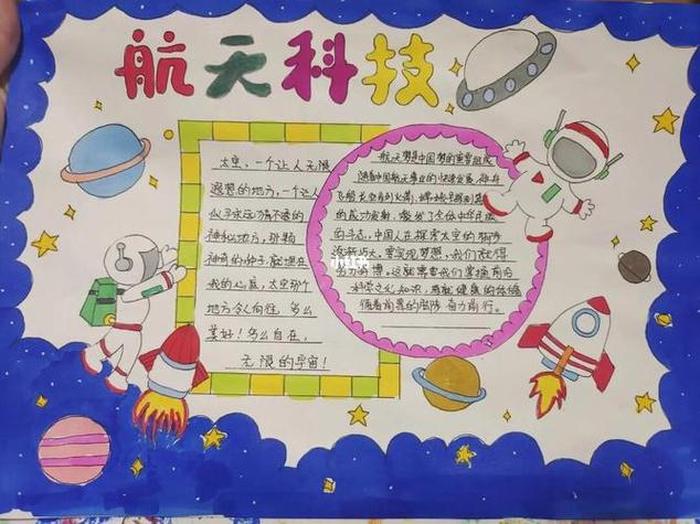 航天科技
太空，一个让人无限
遐想的地方，一个让人
似乎永远猜不透的
神秘地方，那颗
神奇的种子就埋在
我的心底，太空那个
地方令人向往，多么
美好！多么自在，
无限的宇宙！
航天梦是中国梦的重要组成
随着中国航天事业的快速发展，神舟
飞船长征系列火箭，嫦娥
的成功发射，激发了全体中华民族
的斗志，中国人在探索太空的脚步
要实现梦想，我们就得
努力拼搏，这就需要我们掌握
科学文化知识，
循着前辈的脚步奋力前行。
小红书